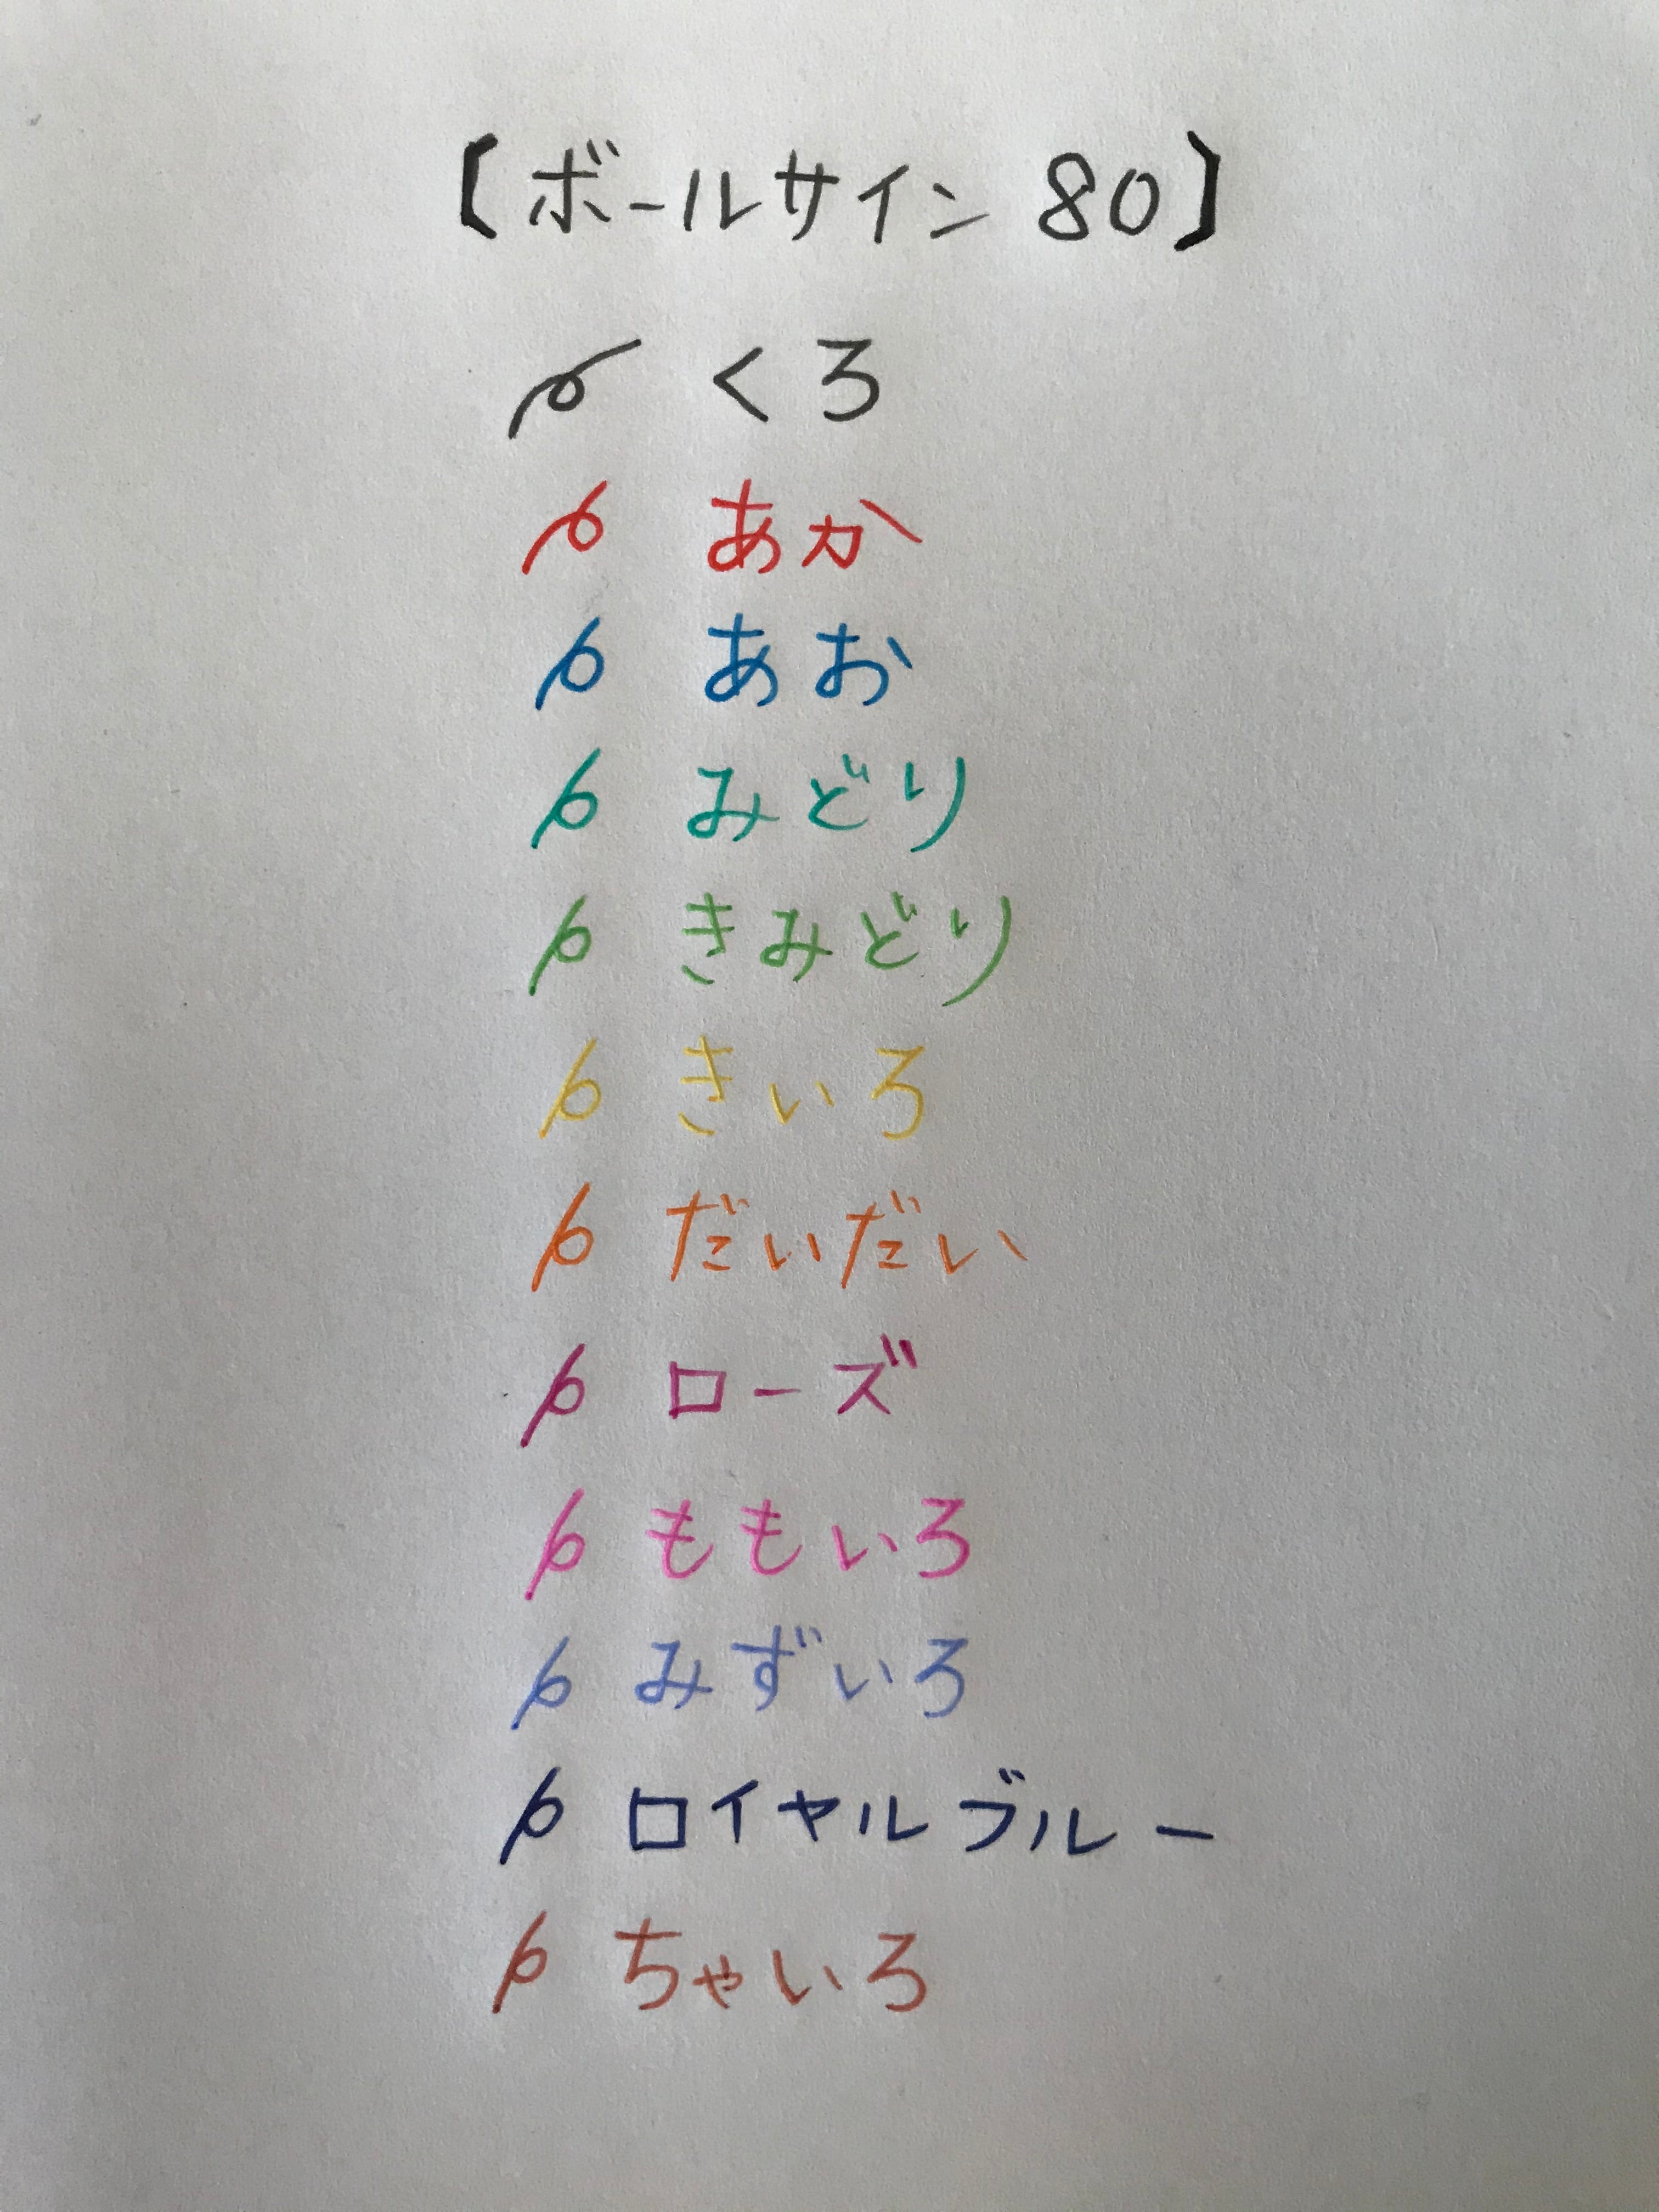 【ボールサイン 80】
くろ
あか
あお
みどり
きみどり
きいろ
だいだい
ローズ
ももいろ
みずいろ
ロイヤルブルー
ちゃいろ